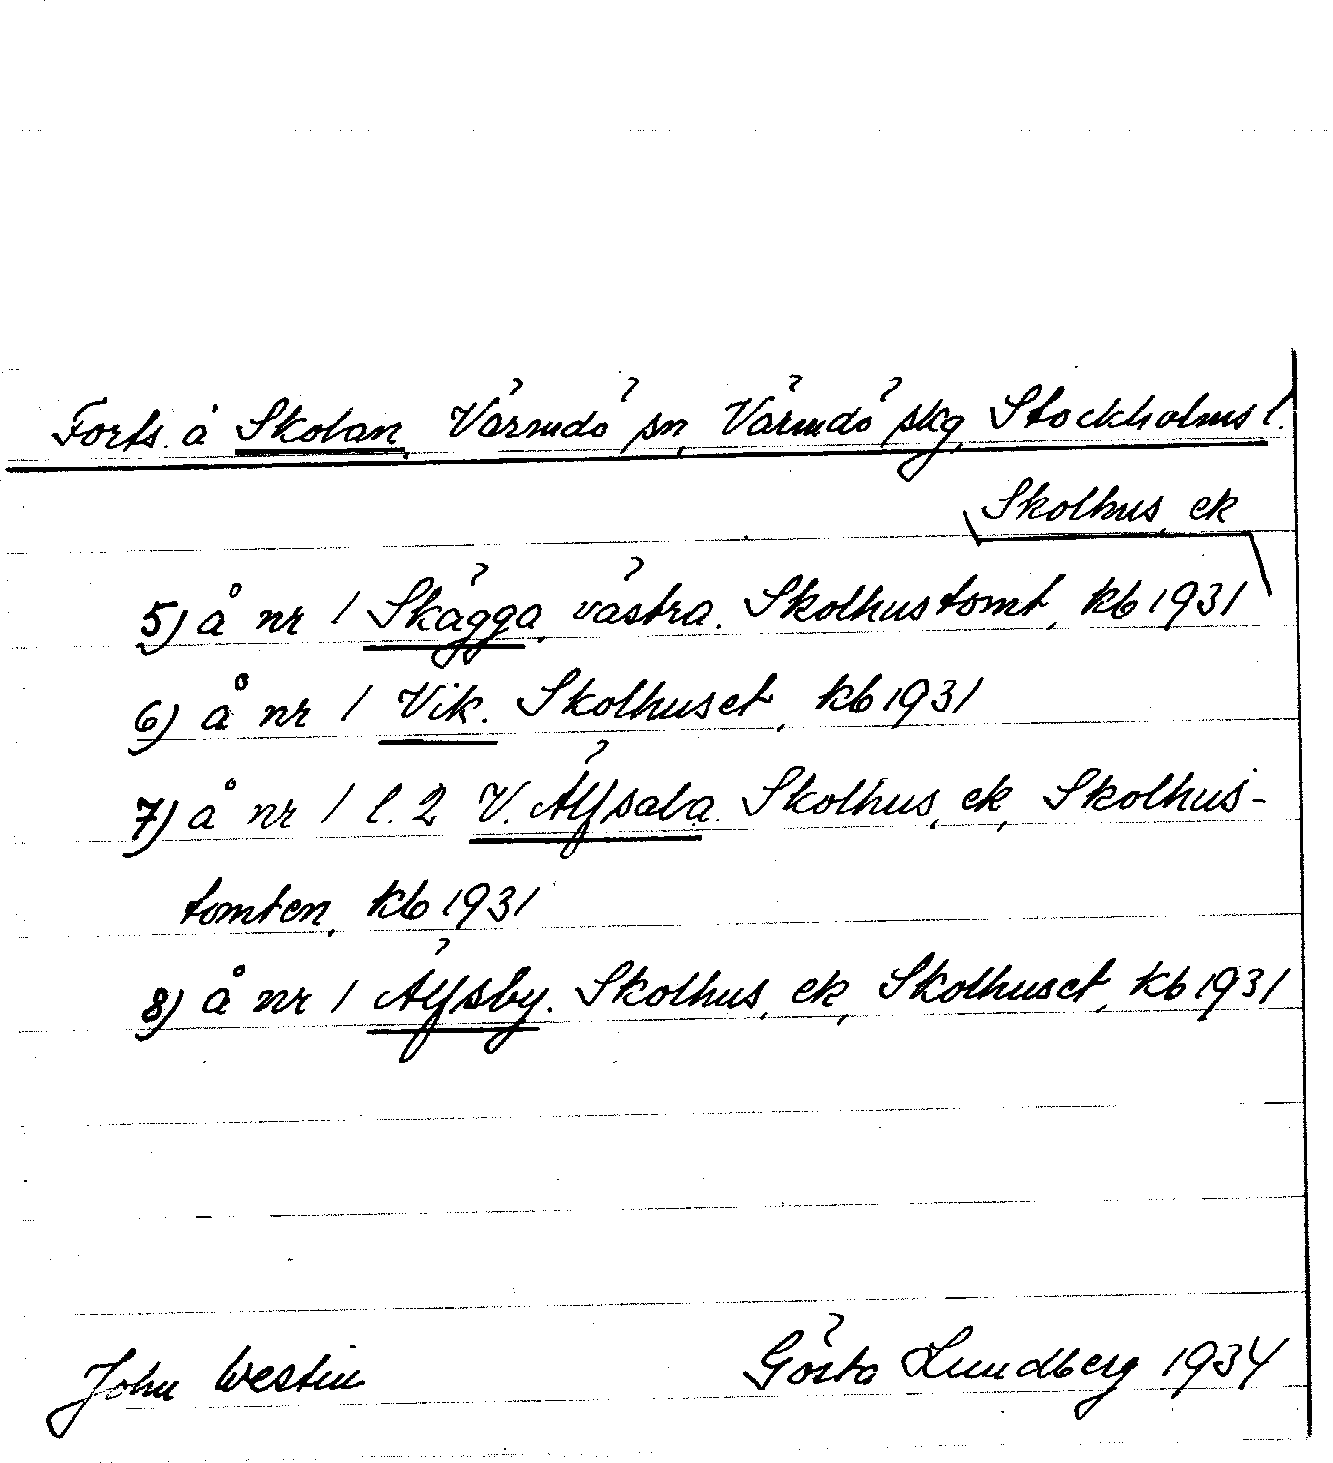 Forts. å Skolan, Värmdö sn, Värmdö skg, Stockholms l.
Skolhus, ek
5) å nr 1 Skägga, västra. Skolhustomt, kb 1931
6) å nr 1 Vik. Skolhuset, kb 1931
7) å nr 1 l. 2 V. Älfsala. Skolhus, ek, Skolhus-
tomten, kb 1931
8) å nr 1 Älfsby. Skolhus, ek, Skolhuset, kb 1931
John Westin Gösta Lundberg 1934